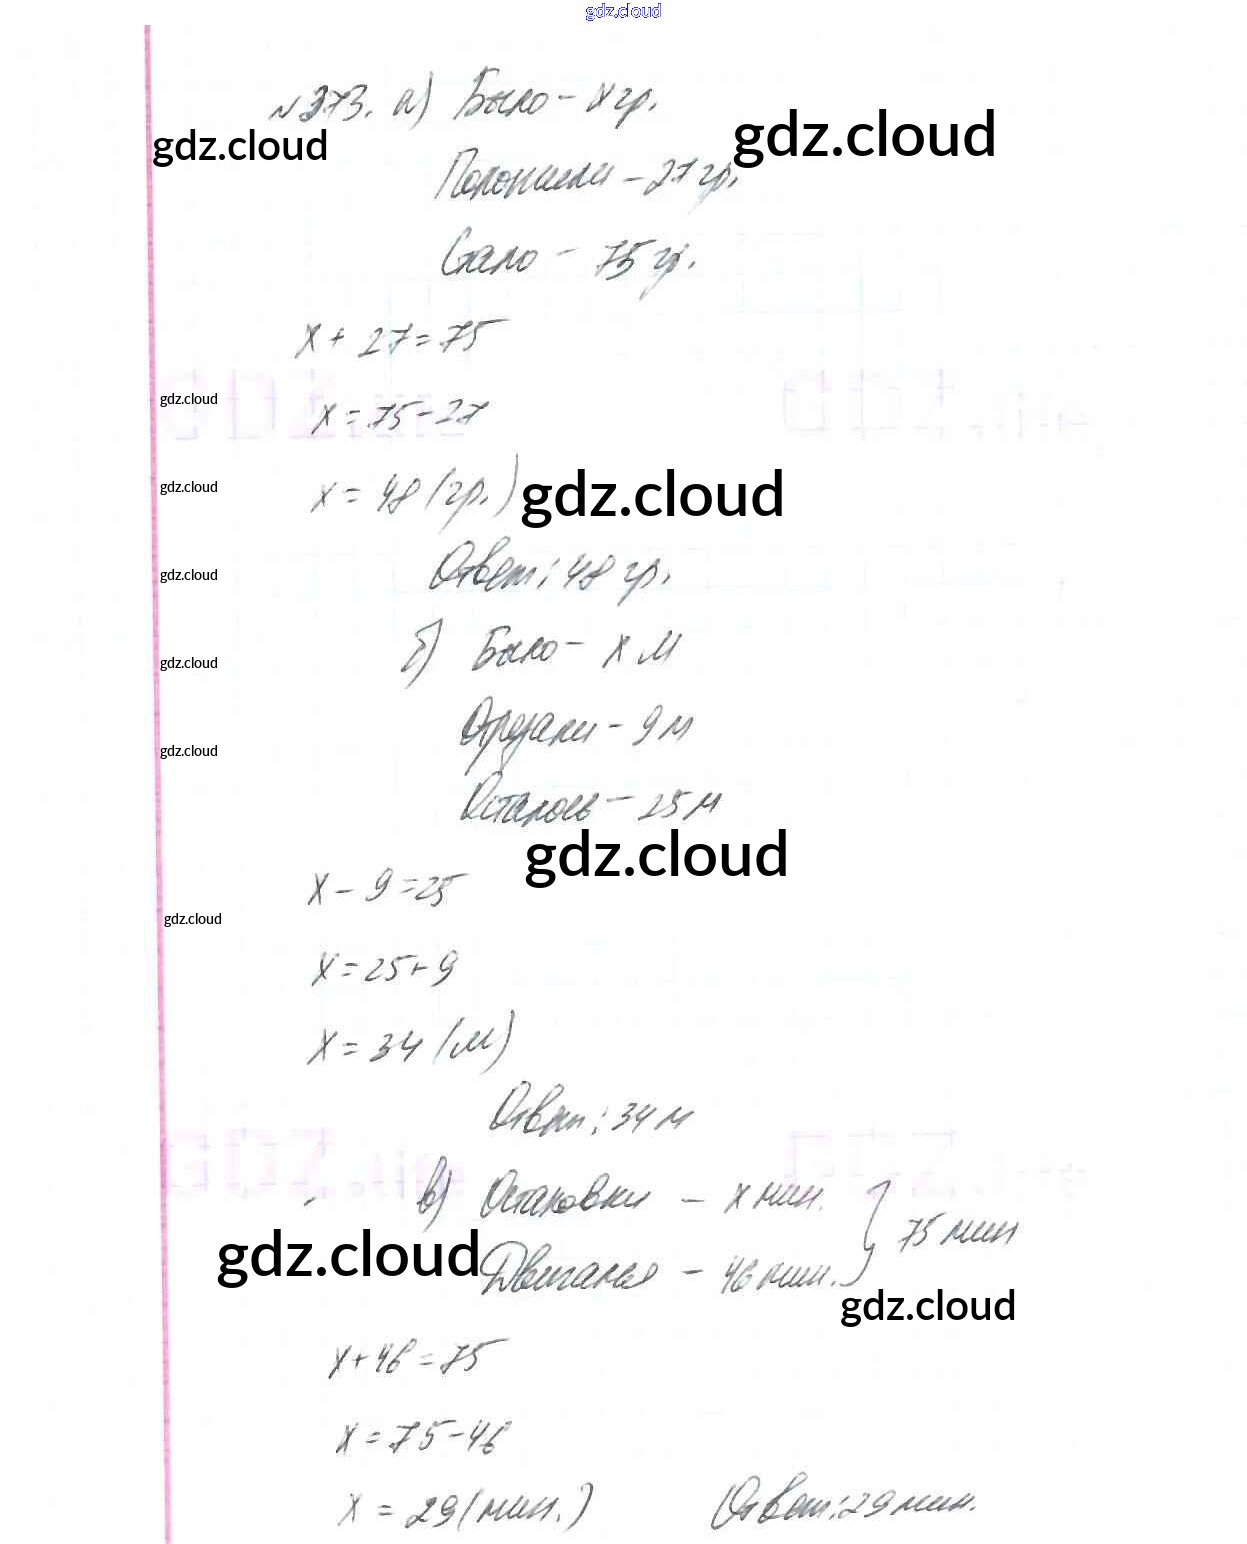 gdz.cloud
№373. а) Было - x гр.
gdz.cloud
gdz.cloud
Положили - 27 гр.
Стало - 75 гр.
x + 27 = 75
gdz.cloud
x = 75 - 27
gdz.cloud
x = 48 (гр.)
gdz.cloud
Ответ: 48 гр.
gdz.cloud
б) Было - x м
gdz.cloud
Отрезали - 9 м
gdz.cloud
Осталось - 25 м
gdz.cloud
x - 9 = 25
gdz.cloud
x = 25 + 9
x = 34 (м)
Ответ: 34 м
в) Остановки - x мин. } 75 мин
gdz.cloud
Двигался - 46 мин.
gdz.cloud
x + 46 = 75
x = 75 - 46
x = 29 (мин.) Ответ: 29 мин.